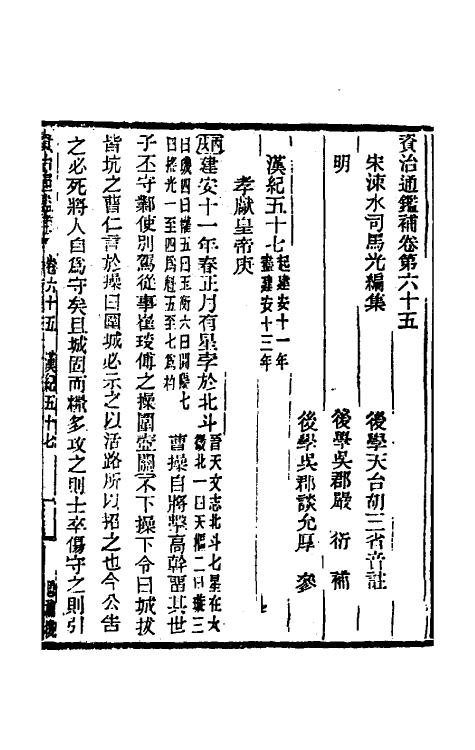 資治通鑑補卷第六十五
宋涑水司馬光編集 後學天台胡三省音註
明 後學吳郡嚴 衍 補
後學吳郡談允厚 參
漢紀五十七 起建安十一年盡建安十三年
孝獻皇帝庚
丙戌建安十一年春正月有星孛於北斗 晉天文志北斗七星在太微北一曰天樞二曰璇三曰璣四曰權五曰玉衡六曰開陽七曰搖光一至四爲魁五至七爲杓 曹操自將擊高幹留其世
子丕守鄴使別駕從事崔琰傅之操圍壺關不下操下令曰城拔
皆坑之曹仁言於操曰圍城必示之以活路所以招之也今公告
之必死將人自爲守矣且城固而糧多攻之則士卒傷守之則引
資治通鑑補 卷六十五 漢紀五十七